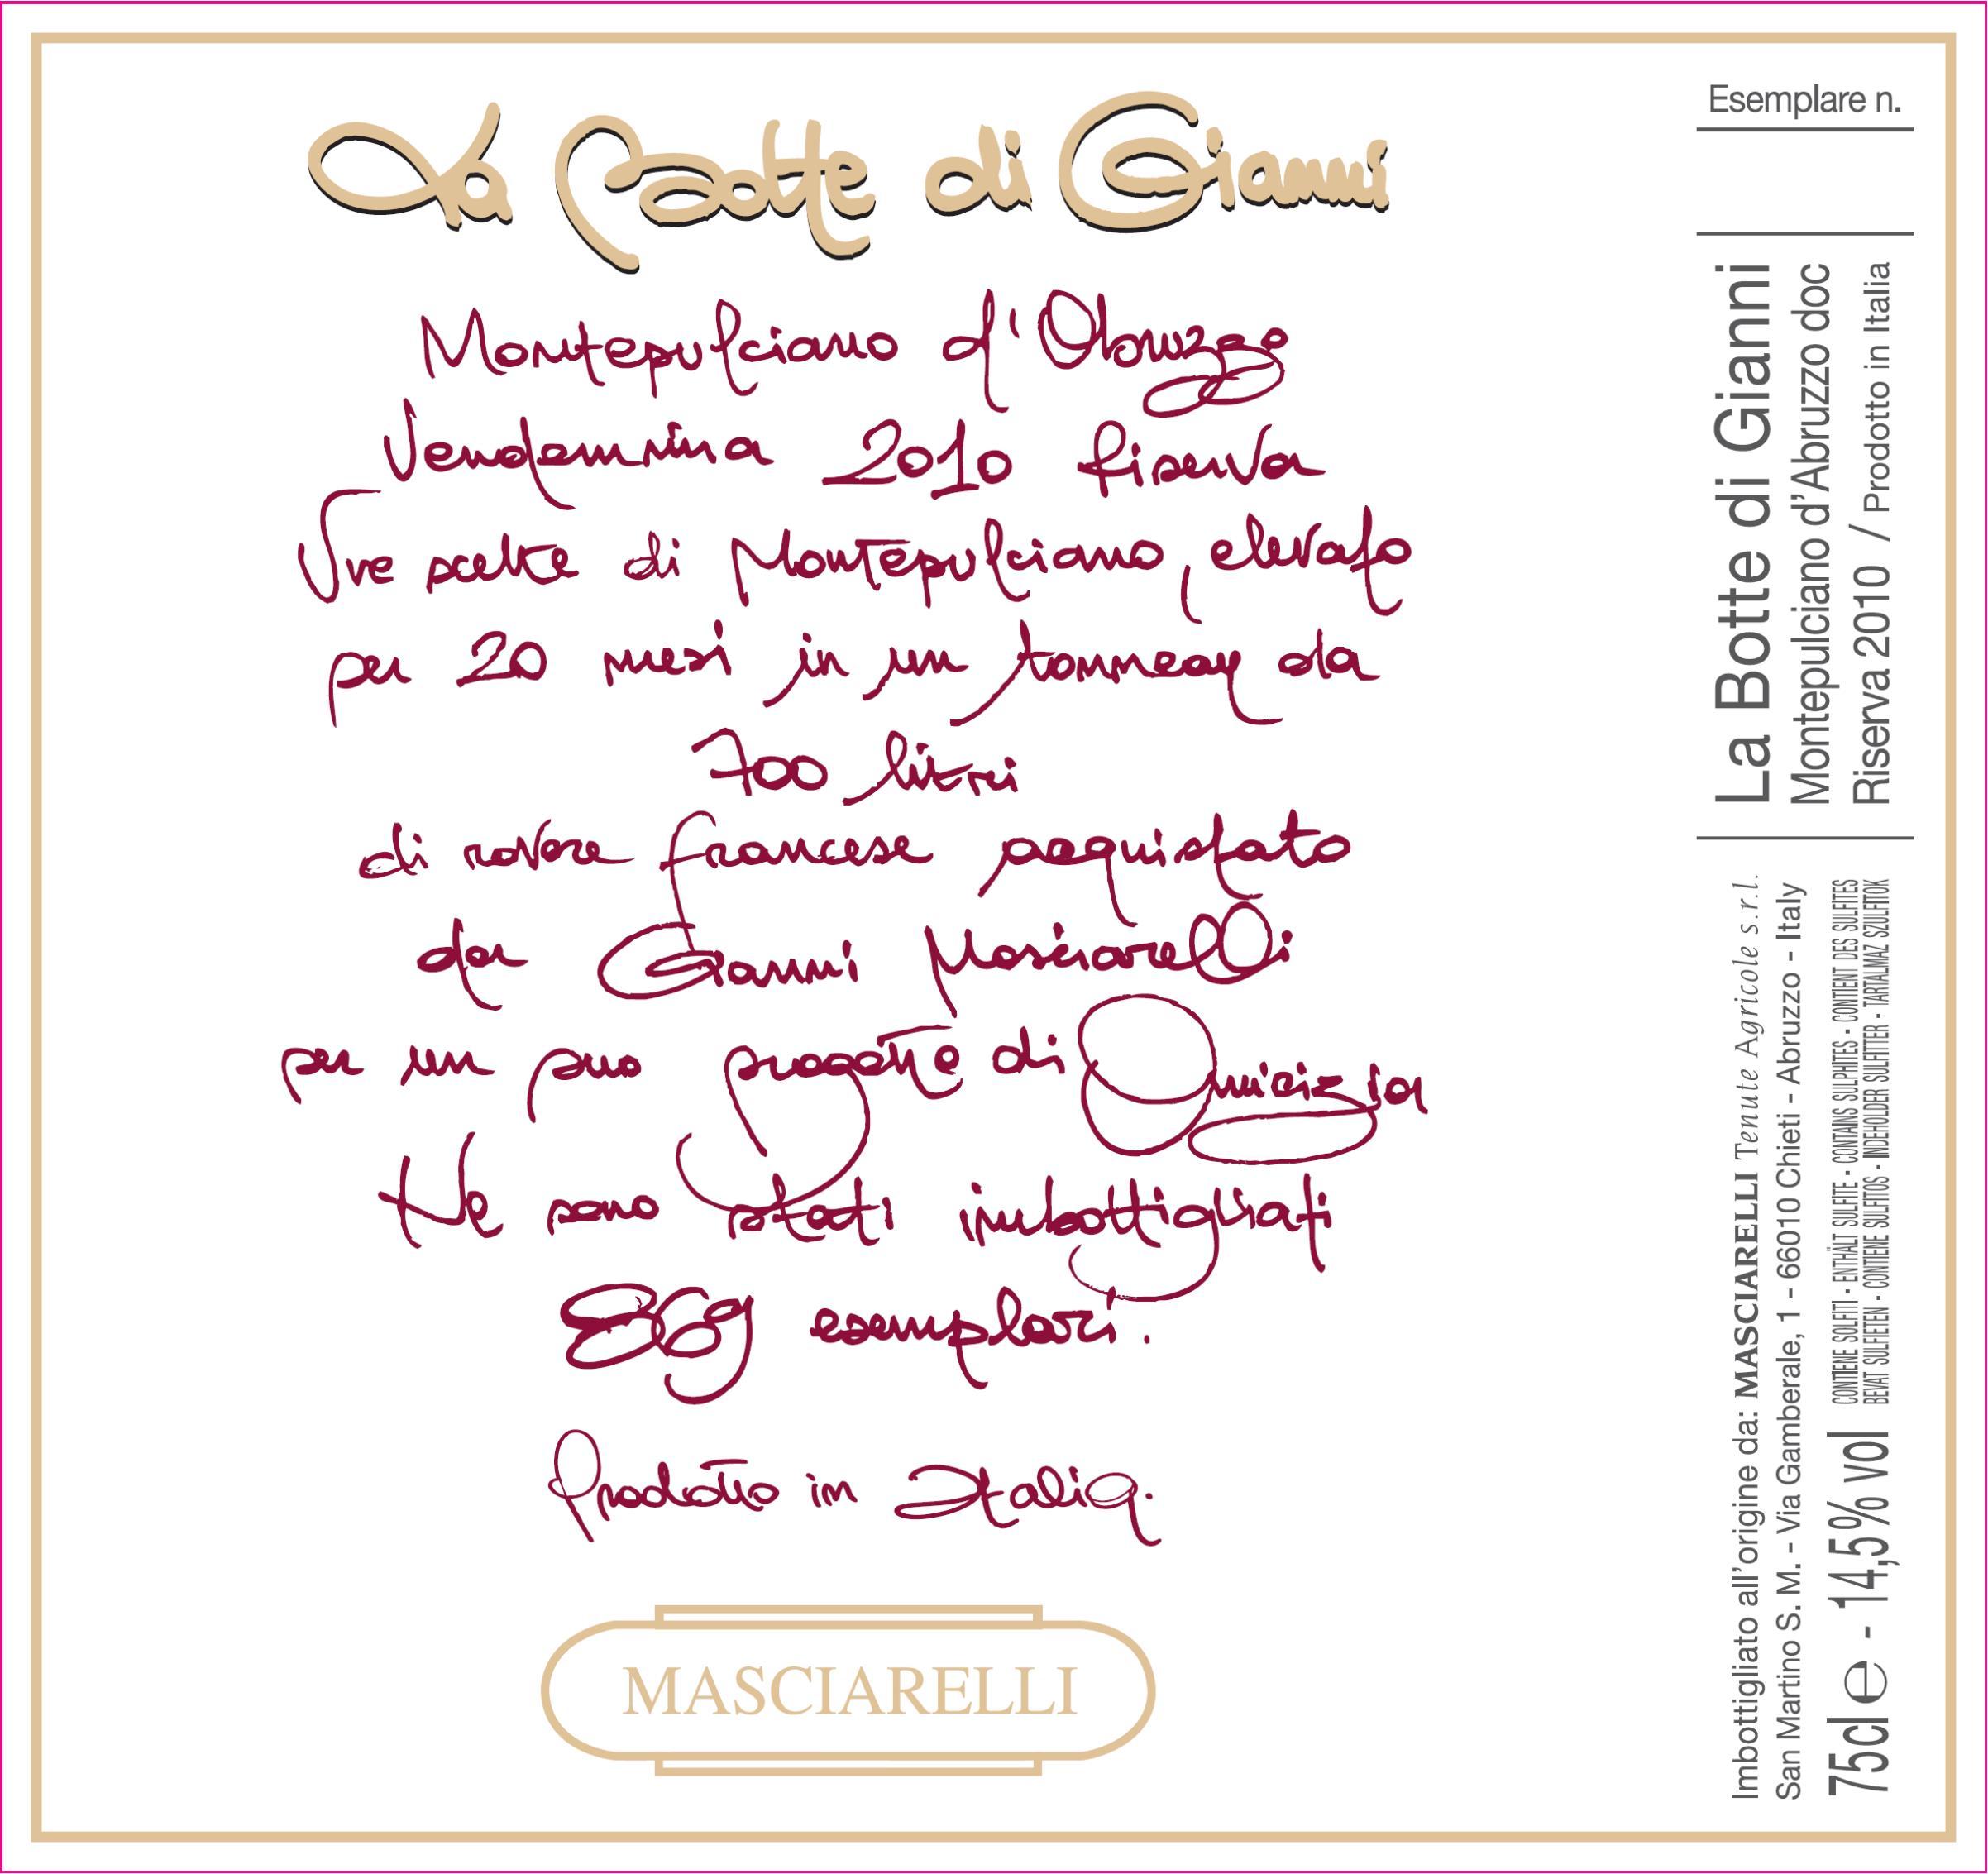 La Botte di Gianni
Montepulciano d'Abruzzo
Vendemmia 2010 Riserva
Uve scelte di Montepulciano, elevato
per 20 mesi in un tonneau da
700 litri
di rovere francese acquistato
da Gianni Masciarelli
per un suo progetto di Amicizia
Ne sono stati imbottigliati
869 esemplari.
Prodotto in Italia.
MASCIARELLI
Esemplare n.
La Botte di Gianni
Montepulciano d'Abruzzo doc
Riserva 2010 / Prodotto in Italia
Imbottigliato all'origine da: MASCIARELLI Tenute Agricole s.r.l.
San Martino S. M. - Via Gamberale, 1 - 66010 Chieti - Abruzzo - Italy
75cl e - 14,5% vol
CONTIENE SOLFITI - ENTHÄLT SULFITE - CONTAINS SULPHITES - CONTIENT DES SULFITES
BEVAT SULFIETEN - CONTIENE SULFITOS - INDEHOLDER SULFITTER - TARTALMAZ SZULFITOK